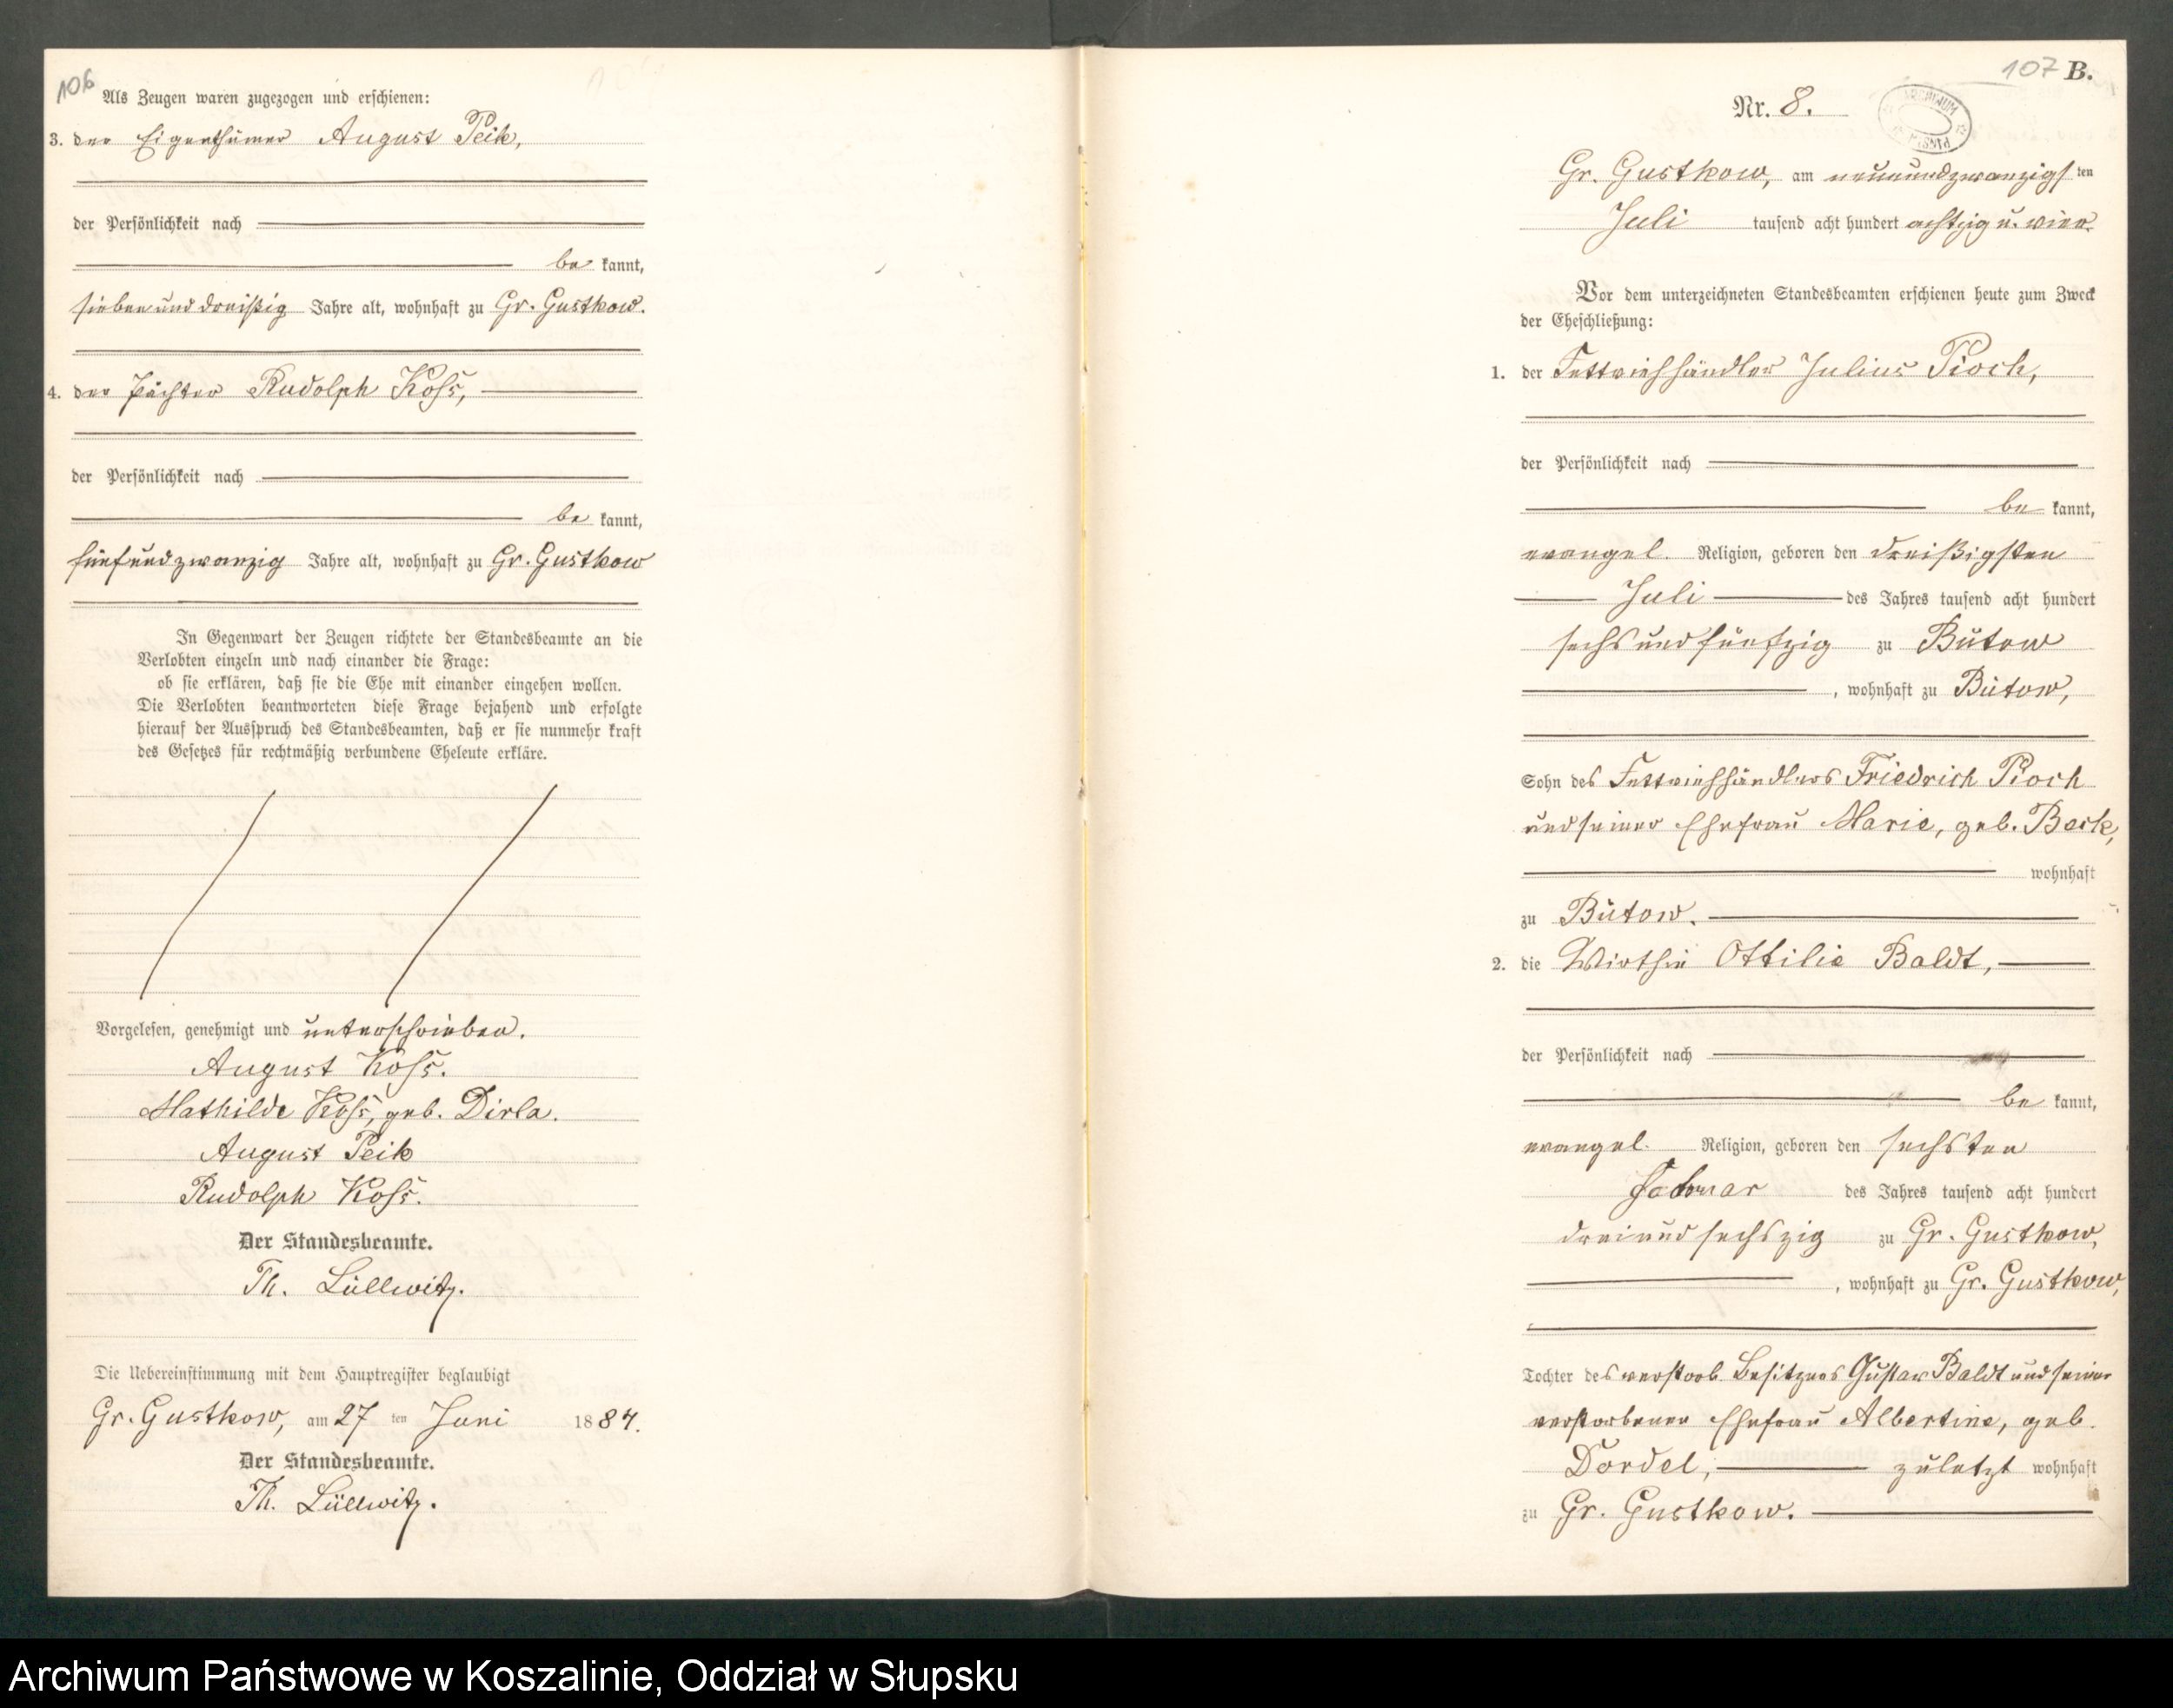 106
Als Zeugen waren zugezogen und erschienen:
3. der Eigenthümer August Peik,
der Persönlichkeit nach
be kannt,
siebenunddreißig Jahre alt, wohnhaft zu Gr. Gustkow.
4. der Pächter Rudolph Koſs,
der Persönlichkeit nach
be kannt,
fünfundzwanzig Jahre alt, wohnhaft zu Gr. Gustkow
In Gegenwart der Zeugen richtete der Standesbeamte an die
Verlobten einzeln und nach einander die Frage:
ob sie erklären, daß sie die Ehe mit einander eingehen wollen.
Die Verlobten beantworteten diese Frage bejahend und erfolgte
hierauf der Ausspruch des Standesbeamten, daß er sie nunmehr kraft
des Gesetzes für rechtmäßig verbundene Eheleute erkläre.
Vorgelesen, genehmigt und unterschrieben.
August Koſs.
Mathilde Koſs, geb. Dirla.
August Peik
Rudolph Koſs.
Der Standesbeamte.
Th. Lüllwitz.
Die Uebereinstimmung mit dem Hauptregister beglaubigt
Gr. Gustkow, am 27 ten Juni 1884.
Der Standesbeamte.
Th. Lüllwitz.
107 B.
Nr. 8.
Gr. Gustkow, am neunundzwanzigs ten
Juli tausend acht hundert achtzig u. vier.
Vor dem unterzeichneten Standesbeamten erschienen heute zum Zweck
der Eheschließung:
1. der Fettviehhändler Julius Pioch,
der Persönlichkeit nach
be kannt,
evangel. Religion, geboren den dreißigsten
Juli des Jahres tausend acht hundert
sechsundfünfzig zu Bütow
, wohnhaft zu Bütow,
Sohn des Fettviehhändlers Friedrich Pioch
und seiner Ehefrau Marie, geb. Beck,
wohnhaft
zu Bütow.
2. die Wirthin Ottilie Baldt,
der Persönlichkeit nach
be kannt,
evangel. Religion, geboren den sechsten
Februar des Jahres tausend acht hundert
dreiundsechszig zu Gr. Gustkow,
, wohnhaft zu Gr. Gustkow,
Tochter des verstorb. Besitzers Gustav Baldt und seiner
verstorbenen Ehefrau Albertine, geb.
Dordel, zuletzt wohnhaft
zu Gr. Gustkow.
Archiwum Państwowe w Koszalinie, Oddział w Słupsku